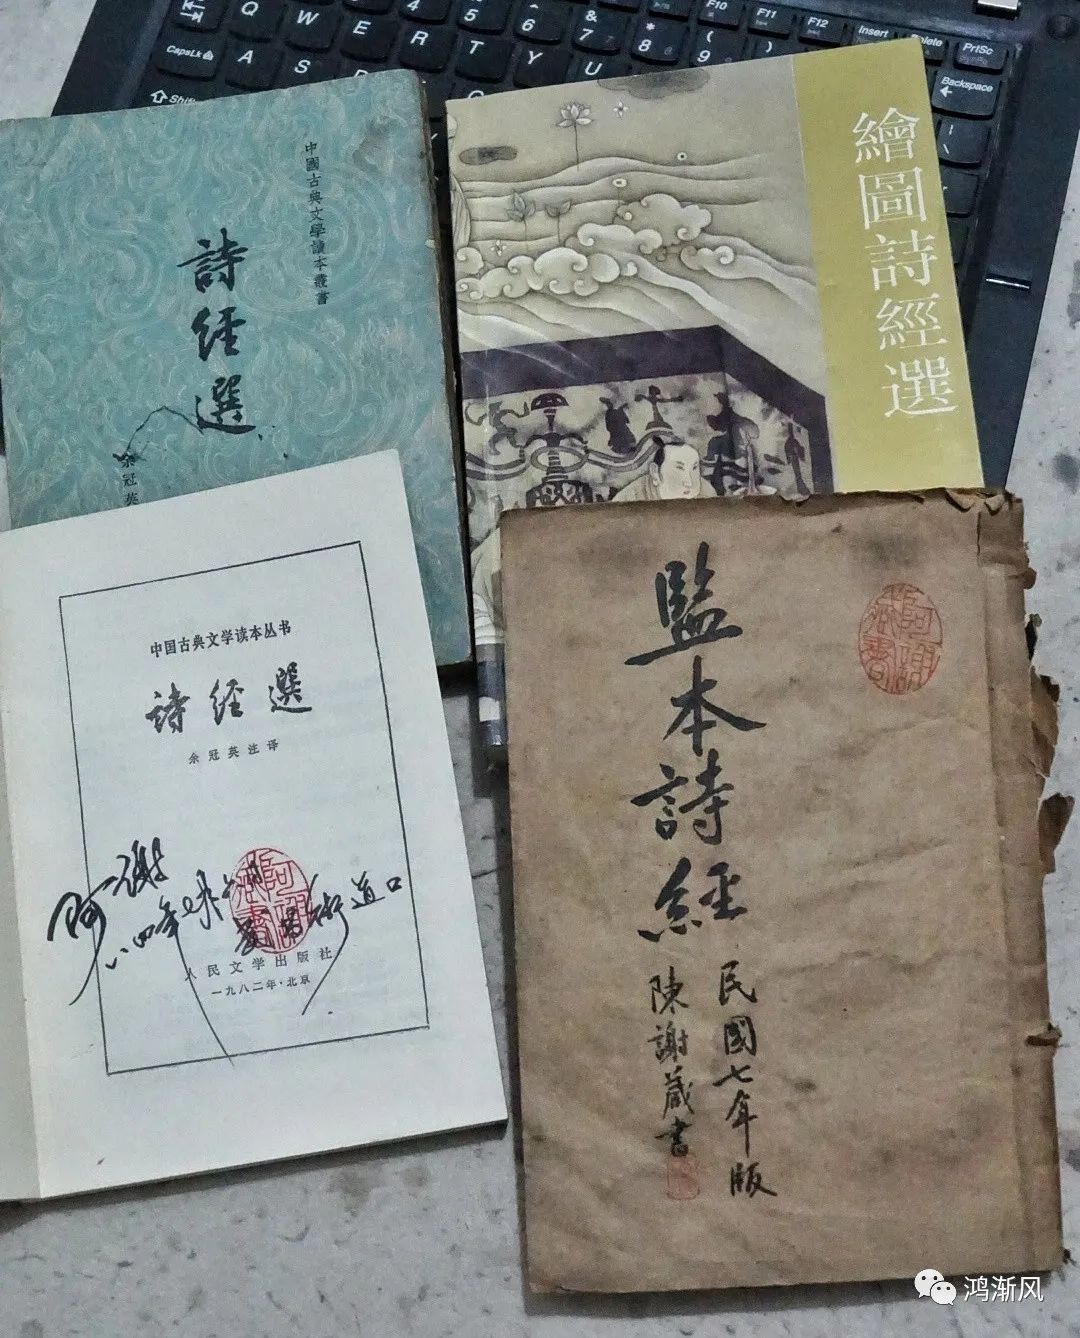 Q W E R T Y U
4 5 6 & 7 * 8 ( 9 )
F10 F11 F12 Insert Delete PrtSc
Backspace
CapsLk A S D
Shift
中國古典文學讀本叢書
詩經選
余冠英
繪圖詩經選
中国古典文学读本丛书
詩經選
余冠英注译
阿謝
八四年
道口
人民文学出版社
一九八二年·北京
監本詩經
民國七年版
陳謝藏書
鸿渐风